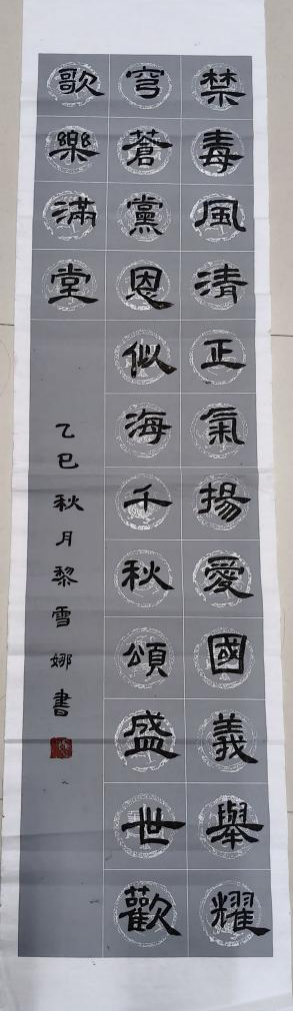 禁毒風清正氣揚愛國義舉耀
穹蒼黨恩似海千秋頌盛世歡
歌樂滿堂
乙巳秋月黎雪娜書